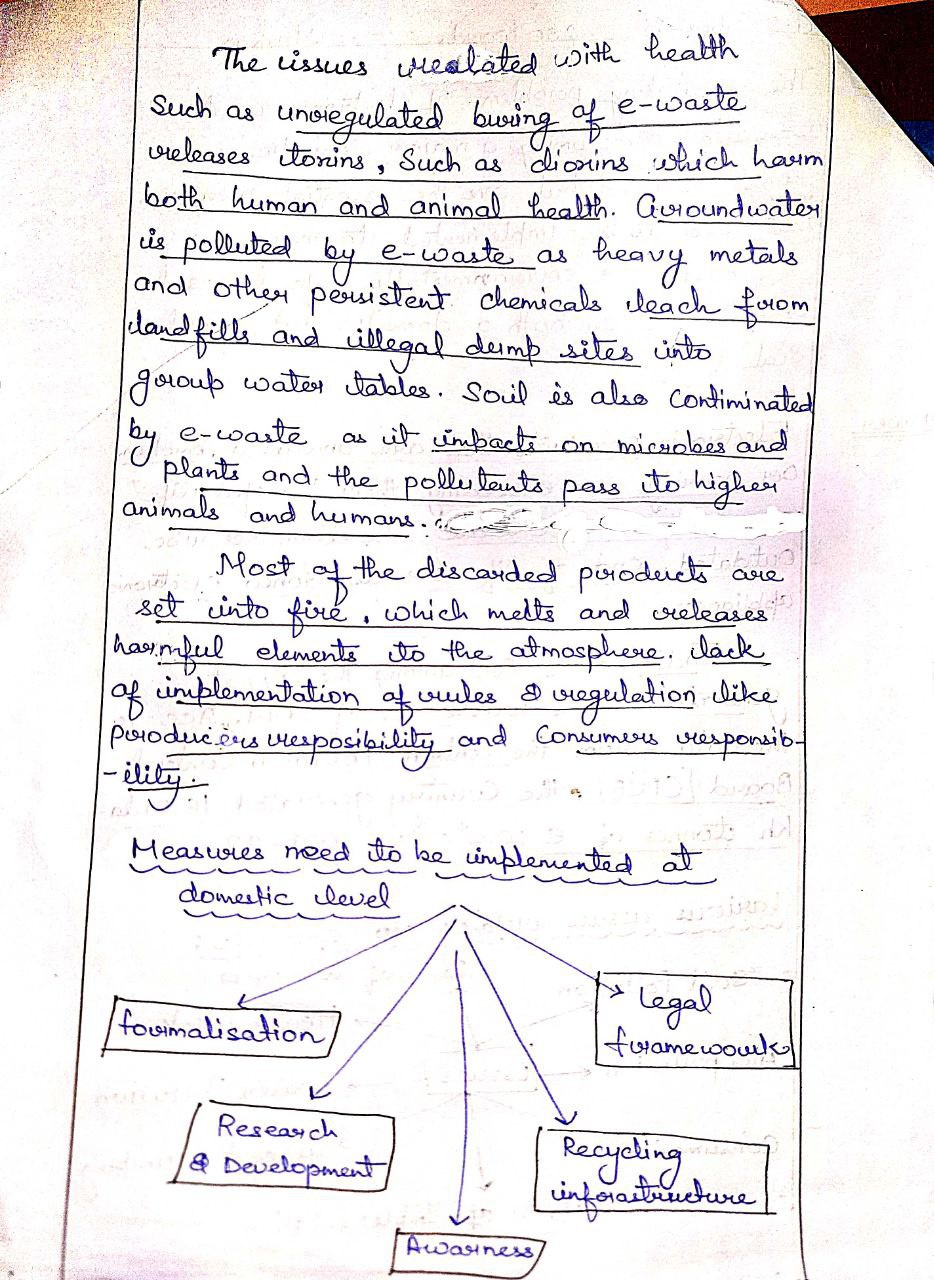 The issues realated with health
Such as unregulated buring of e-waste
releases toxins, Such as dioxins which harm
both human and animal health. Groundwater
is polluted by e-waste as heavy metals
and other persistent chemicals leach from
landfills and illegal dump sites into
group water tables. Soil is also contiminated
by e-waste as it impacts on microbes and
plants and the pollutants pass to higher
animals and humans.
Most of the discarded products are
set into fire, which melts and releases
harmful elements to the atmosphere. lack
of implementation of rules & regulation like
producers resposibility and Consumers responsib-
-ility.
Measures need to be implemented at
domestic level
formalisation
Legal
framework
Research
& Development
Recycling
infrastructure
Awarness